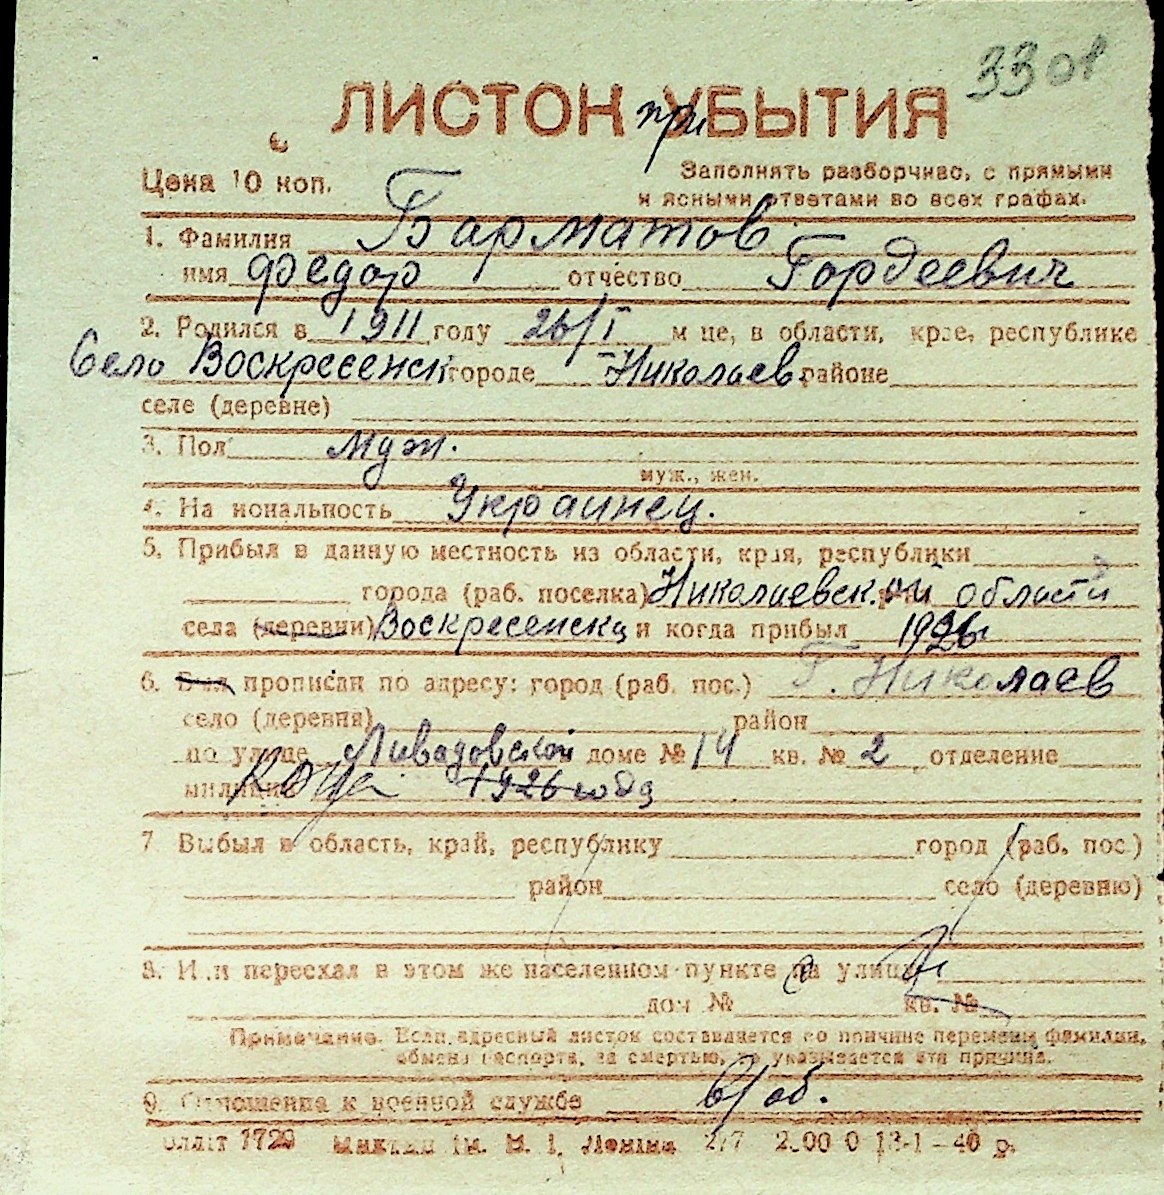 3301
ЛИСТОК при УБЫТИЯ
Цена 10 коп.
Заполнять разборчиво, с прямыми
и ясными ответами во всех графах.
1. Фамилия Барматов
имя Федор отчество Гордеевич
2. Родился в 1911 году 26/I м це, в области, крае, республике
Село Воскресенск городе Николаев. районе
селе (деревне)
3. Пол муж.
муж., жен.
4. На иональность Украинец.
5. Прибыл в данную местность из области, края, республики
города (раб. поселка) Николаевск.ой области
села (деревни) Воскресенска и когда прибыл 1926
6. Был прописан по адресу: город (раб. пос.) Г. Николаев
село (деревня) район
по улице Ливадовской доме № 14 кв. № 2 отделение
милиции Когда 1926 года
7 Выбыл в область, край, республику город (раб. пос.)
район село (деревню)
8. Или переехал в этом же населенном пункте на улицу
дом № кв. №
Примечание. Если адресный листок составляется по причине перемены фамилии,
обмена паспорта, за смертью, то указывается эта причина.
9. Отношение к военной службе в/об.
1729 им. В. І. Леніна 277 13-1-40 р.